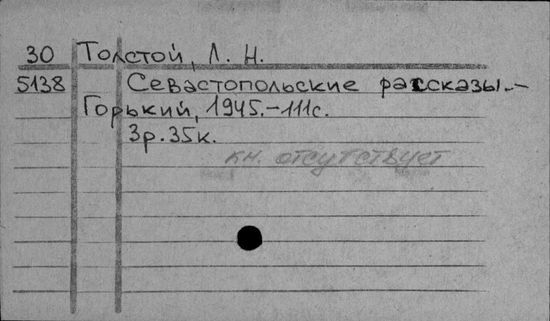 30 Толстой, Л. Н.
5138 Севастопольские рассказы.–
Горький, 1945.–111с.
3р.35к.
кн. отсутствует